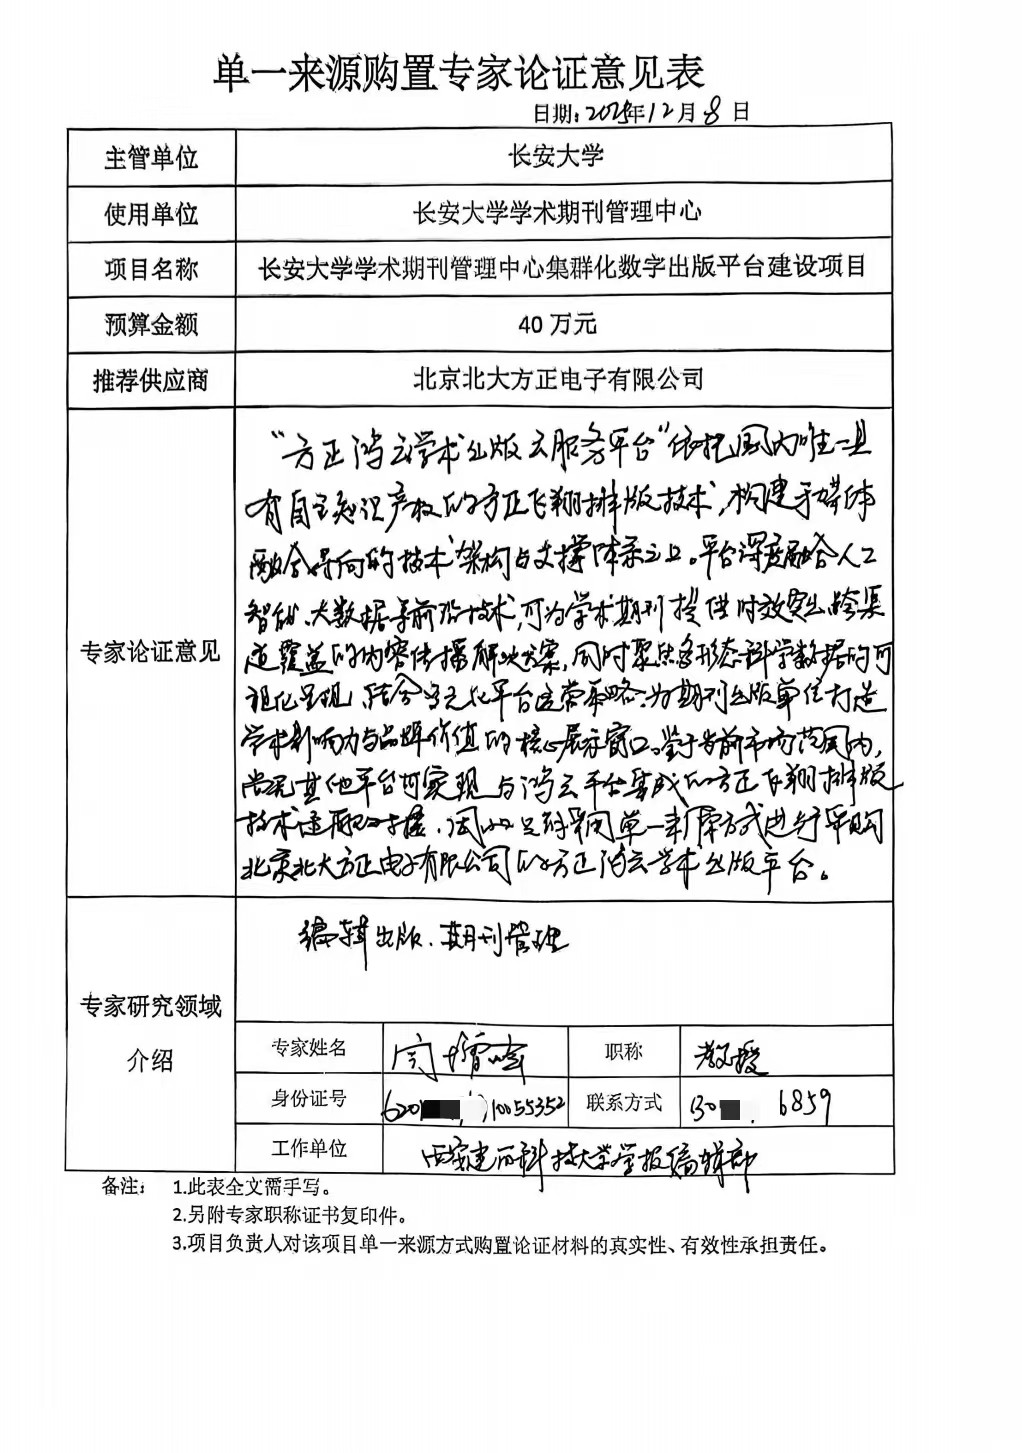 单一来源购置专家论证意见表
日期：2025年12月8日
主管单位 长安大学
使用单位 长安大学学术期刊管理中心
项目名称 长安大学学术期刊管理中心集群化数字出版平台建设项目
预算金额 40万元
推荐供应商 北京北大方正电子有限公司
专家论证意见
“方正鸿云学术出版云服务平台”依托国内唯一具
有自主知识产权的方正飞翔排版技术，构建于媒体
融合导向的技术架构与支撑体系之上。平台深度融合人工
智能、大数据等前沿技术，可为学术期刊提供时效突出、跨渠
道覆盖的内容传播解决方案，同时聚焦多形态科学数据的可
视化呈现，结合多元化平台运营策略，为期刊出版单位打造
学术影响力与品牌价值的核心展示窗口。鉴于当前市场范围内，
尚无其他平台可实现与鸿云平台集成的方正飞翔排版
技术适配对接，因此只能采用单一来源方式进行采购
北京北大方正电子有限公司的方正鸿云学术出版平台。
专家研究领域
介绍
编辑出版、期刊管理
专家姓名 职称 教授
身份证号 10055352 联系方式 6859
工作单位 西安建筑科技大学学报编辑部
备注： 1.此表全文需手写。
2.另附专家职称证书复印件。
3.项目负责人对该项目单一来源方式购置论证材料的真实性、有效性承担责任。